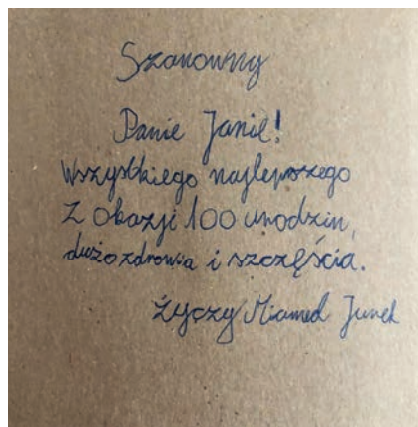 Szanowny
Panie Janie!
Wszystkiego najlepszego
Z okazji 100 urodzin,
dużo zdrowia i szczęścia.
Życzy